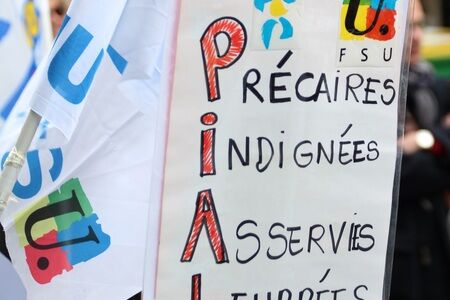 U.
FSU
PRÉCAIRES
iNDIGNÉES
ASSERVIES
SU.